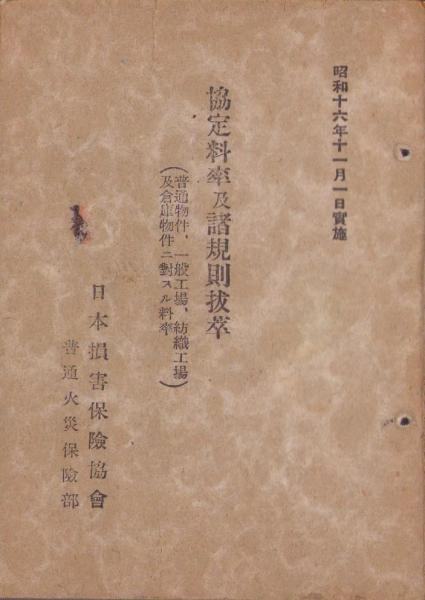 昭和十六年十一月一日實施
協定料率及諸規則拔萃
(普通物件、一般工場、紡織工場
及倉庫物件ニ對スル料率)
日本損害保險協會
普通火災保險部